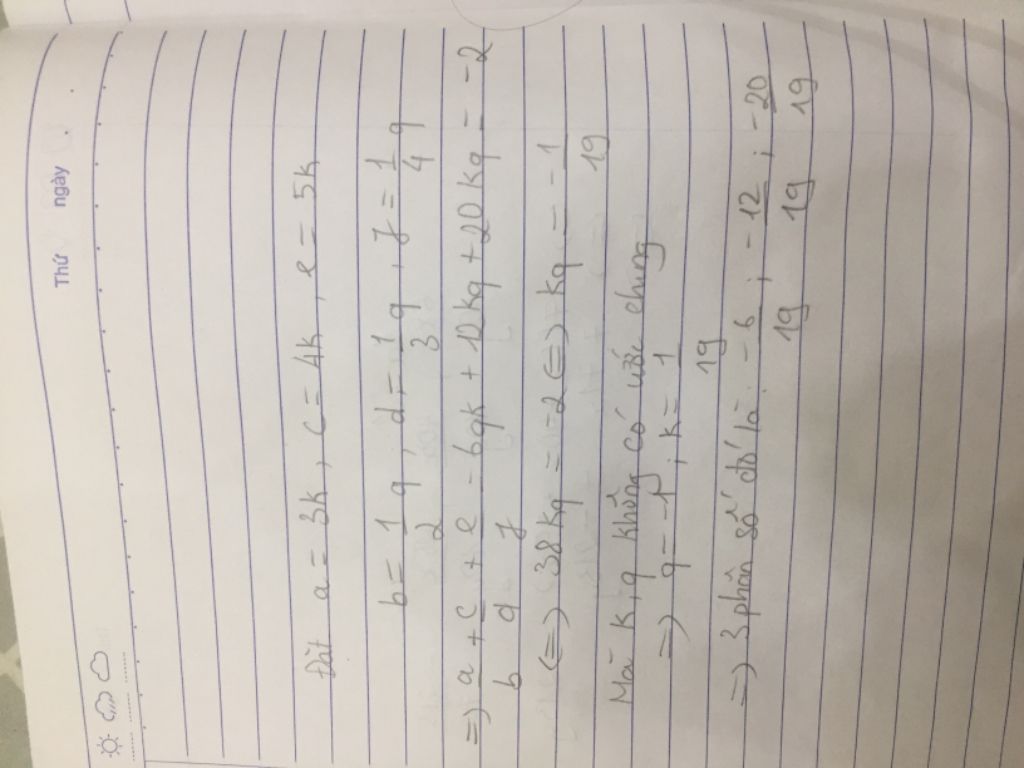 Thứ ngày
Đặt a = 3k, c = 4k, e = 5k
b = 1/2 q, d = 1/3 q, f = 1/4 q
=> a/b + c/d + e/f = 6qk + 12kq + 20kq = -2
<=> 38kq = -2 <=> kq = -1/19
Mà k, q không có ước chung
=> q = -1; k = 1/19
=> 3 phân số đó là: -6/19; -12/19; -20/19